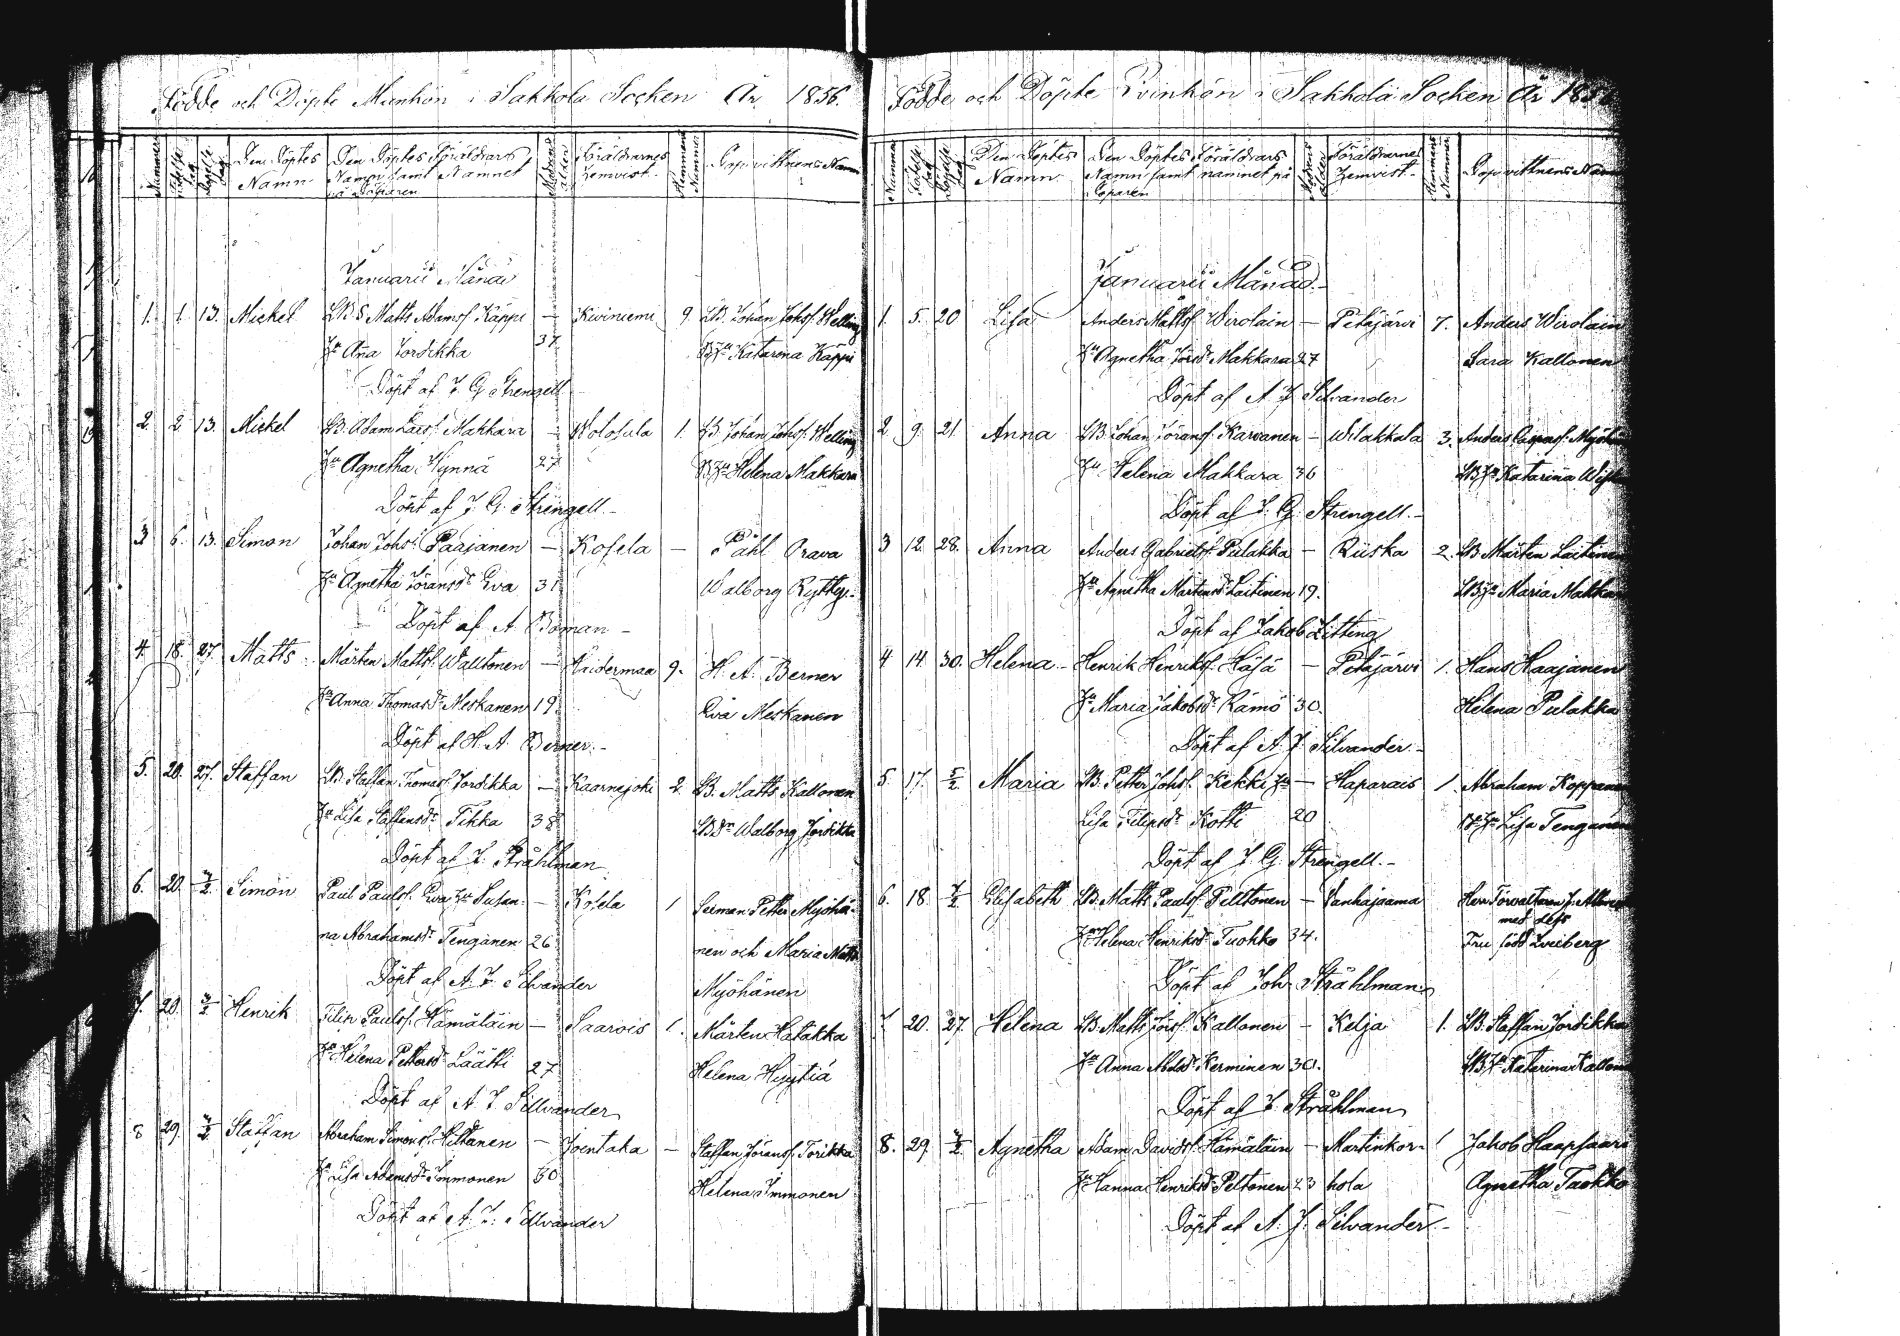 Födde och Döpte Mankön i Sakkola Socken År 1856.
Nummer Födelse dag Döpelse dag Den Döptes Namn Den Döptes Föräldrars Namn samt Namnet på Döparen Modrens ålder Föräldrarnes Hemvist. Hemmans Nummer Dopvittnens Namn
Januarii Månad
1. 1. 13. Mickel LB S Matts Adamss. Käppi – Kiviniemi 9. LB. Johan Johss. Relling
Hu Ana Jordikka 37 Katarina Käppi
Döpt af J G Strengell
2. 2 13. Mickel LB. Adam Larss. Makkara – Wolosula 1. LB. Johan Johss. Relling
Hu Agnetha Hynnä 27 Helena Makkara
Döpt af J. G. Strengell. –
3 6. 13. Simon Johan Johss. Paajanen – Kosela – Påhl Orava
Hu Agnetha Jöransdr Eva 31 Walborg Ryttyi.
Döpt af A Boman –
4. 18. 27. Matts Mårten Mattss. Walttonen – 9. H. A. Berner
Hu Anna Thomasdr Meskanen 19. Eva Meskanen
Döpt af H. A. Berner. –
5. 20. 27. Staffan LB Staffan Thomass. Jordikka – Kaarnajoki 2. LB. Matts Kallonen
Hu Lisa Staffansdr Tikka 38 Walborg Jordikka
Döpt af J. Stråhlman
6. 20. 3/2. Simon Paul Paulss. Eva Hu Susan- – Kosela 1 Seeman Petter Myöhä-
na Abrahamsdr Tenganen 26 nen och Maria
Döpt af A. J. Silvander Myöhänen
7. 20. 3/2 Henrik Filip Paulss. Hämäläin – Saarois 1. Mårten Hatakka
Hu Helena Pettersdr Läätti 27 Helena Hyytiä
Döpt af A. J. Sillvander
8 29. 3/2 Staffan Abraham Simonss. Hiltanen – Joentaka – Staffan Jöranss. Torikka
Hu Lisa Adamsdr Immonen 30 Helena Immonen
Döpt af A. J. Sillvander
Födde och Döpte Qvinkön i Sakkola Socken År 1856
Nummer Födelse dag Döpelse dag Den Döptes Namn Den Döptes Föräldrars Namn samt namnet på Döparen Modrens ålder Föräldrarnes Hemvist. Hemmans Nummer Dopvittnens Namn
Januarii Månad. –
1. 5. 20 Lisa Anders Mattss. Wirolain – Petäjärvi 7. Anders Wirolain
Hu Agnetha Jörsdr Makkara 27 Sara Kallonen
Döpt af A J Silvander
2 9. 21. Anna LB. Johan Jöranss. Karvanen – Wilakkala 3. Anders
Hu Helena Makkara 36 Katarina
Döpt af J. G. Strengell. –
3 12. 28. Anna Anders Gabrielss. Pulakka – Riiska 2. LB Mårten Laitinen
Hu Agnetha Mårtensdr Laitinen 19. Maria Makkara
Döpt af Jakob Zitting
4 14. 30. Helena – Henrik Henrikss. Häsä – Petäjärvi 1. Hans Haajanen
Hu Maria Jakobsdr Rämö 30. Helena Pulakka
Döpt af A. J. Silvander. –
5. 17. 5/2 Maria LB. Petter Johss. Kekki Hu – Haparais 1. Abraham Koppanen
Lisa Filipsdr Kotti 20 Lisa Tenganen
Döpt af J G Strengell. –
6. 18. 7/2 Elisabeth LB. Matts Paulss. Pelttonen – Vanhajaama Herr Förvaltaren
med dess
Hu Helena Henriksdr Tuokko 34. Fru född
Döpt af Joh. Stråhlman
7 20. 27. Helena LB. Matts Jörss. Kallonen – Kelja 1. LB. Staffan Jordikka
Hu Anna Abelsdr Kerminen 30. Katarina Kallonen
Döpt af J. Stråhlman
8. 29. 3/2 Agnetha Adam Davidss. Hämäläin – Martinkor- 1 Jakob Haapsaari
Hu Hanna Henriksdr Peltonen 23 hola Agnetha Tuokko
Döpt af A. J. Silvander –